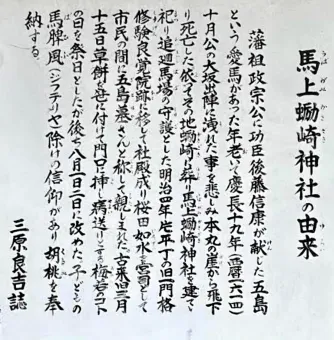 馬上蛎崎神社の由来
藩祖政宗公に功臣後藤信康が献じた五島
という愛馬があった年老いて慶長十九年(西暦一六一四)
十月公の大坂出陣に洩れた事を悲しみ本丸の崖から飛下
り死亡した依ってその地蛎崎に葬り馬上蛎崎神社を建て
祀り追廻馬場の守護とした明治四年片平丁の一門格
修験良覚院跡に移して社殿成り桜田如水を宮司として
市民の間に五島墓さんと称して親しまれた古来旧三月
十五日草餅を苞に付け門口に挿し病送りとする梅若のコト
の日を祭日としたが後ち八月一日二日に改めた子どもの
馬脾風(ジフテリヤ)除けの信仰があり胡桃を奉
納する。
三原良吉誌